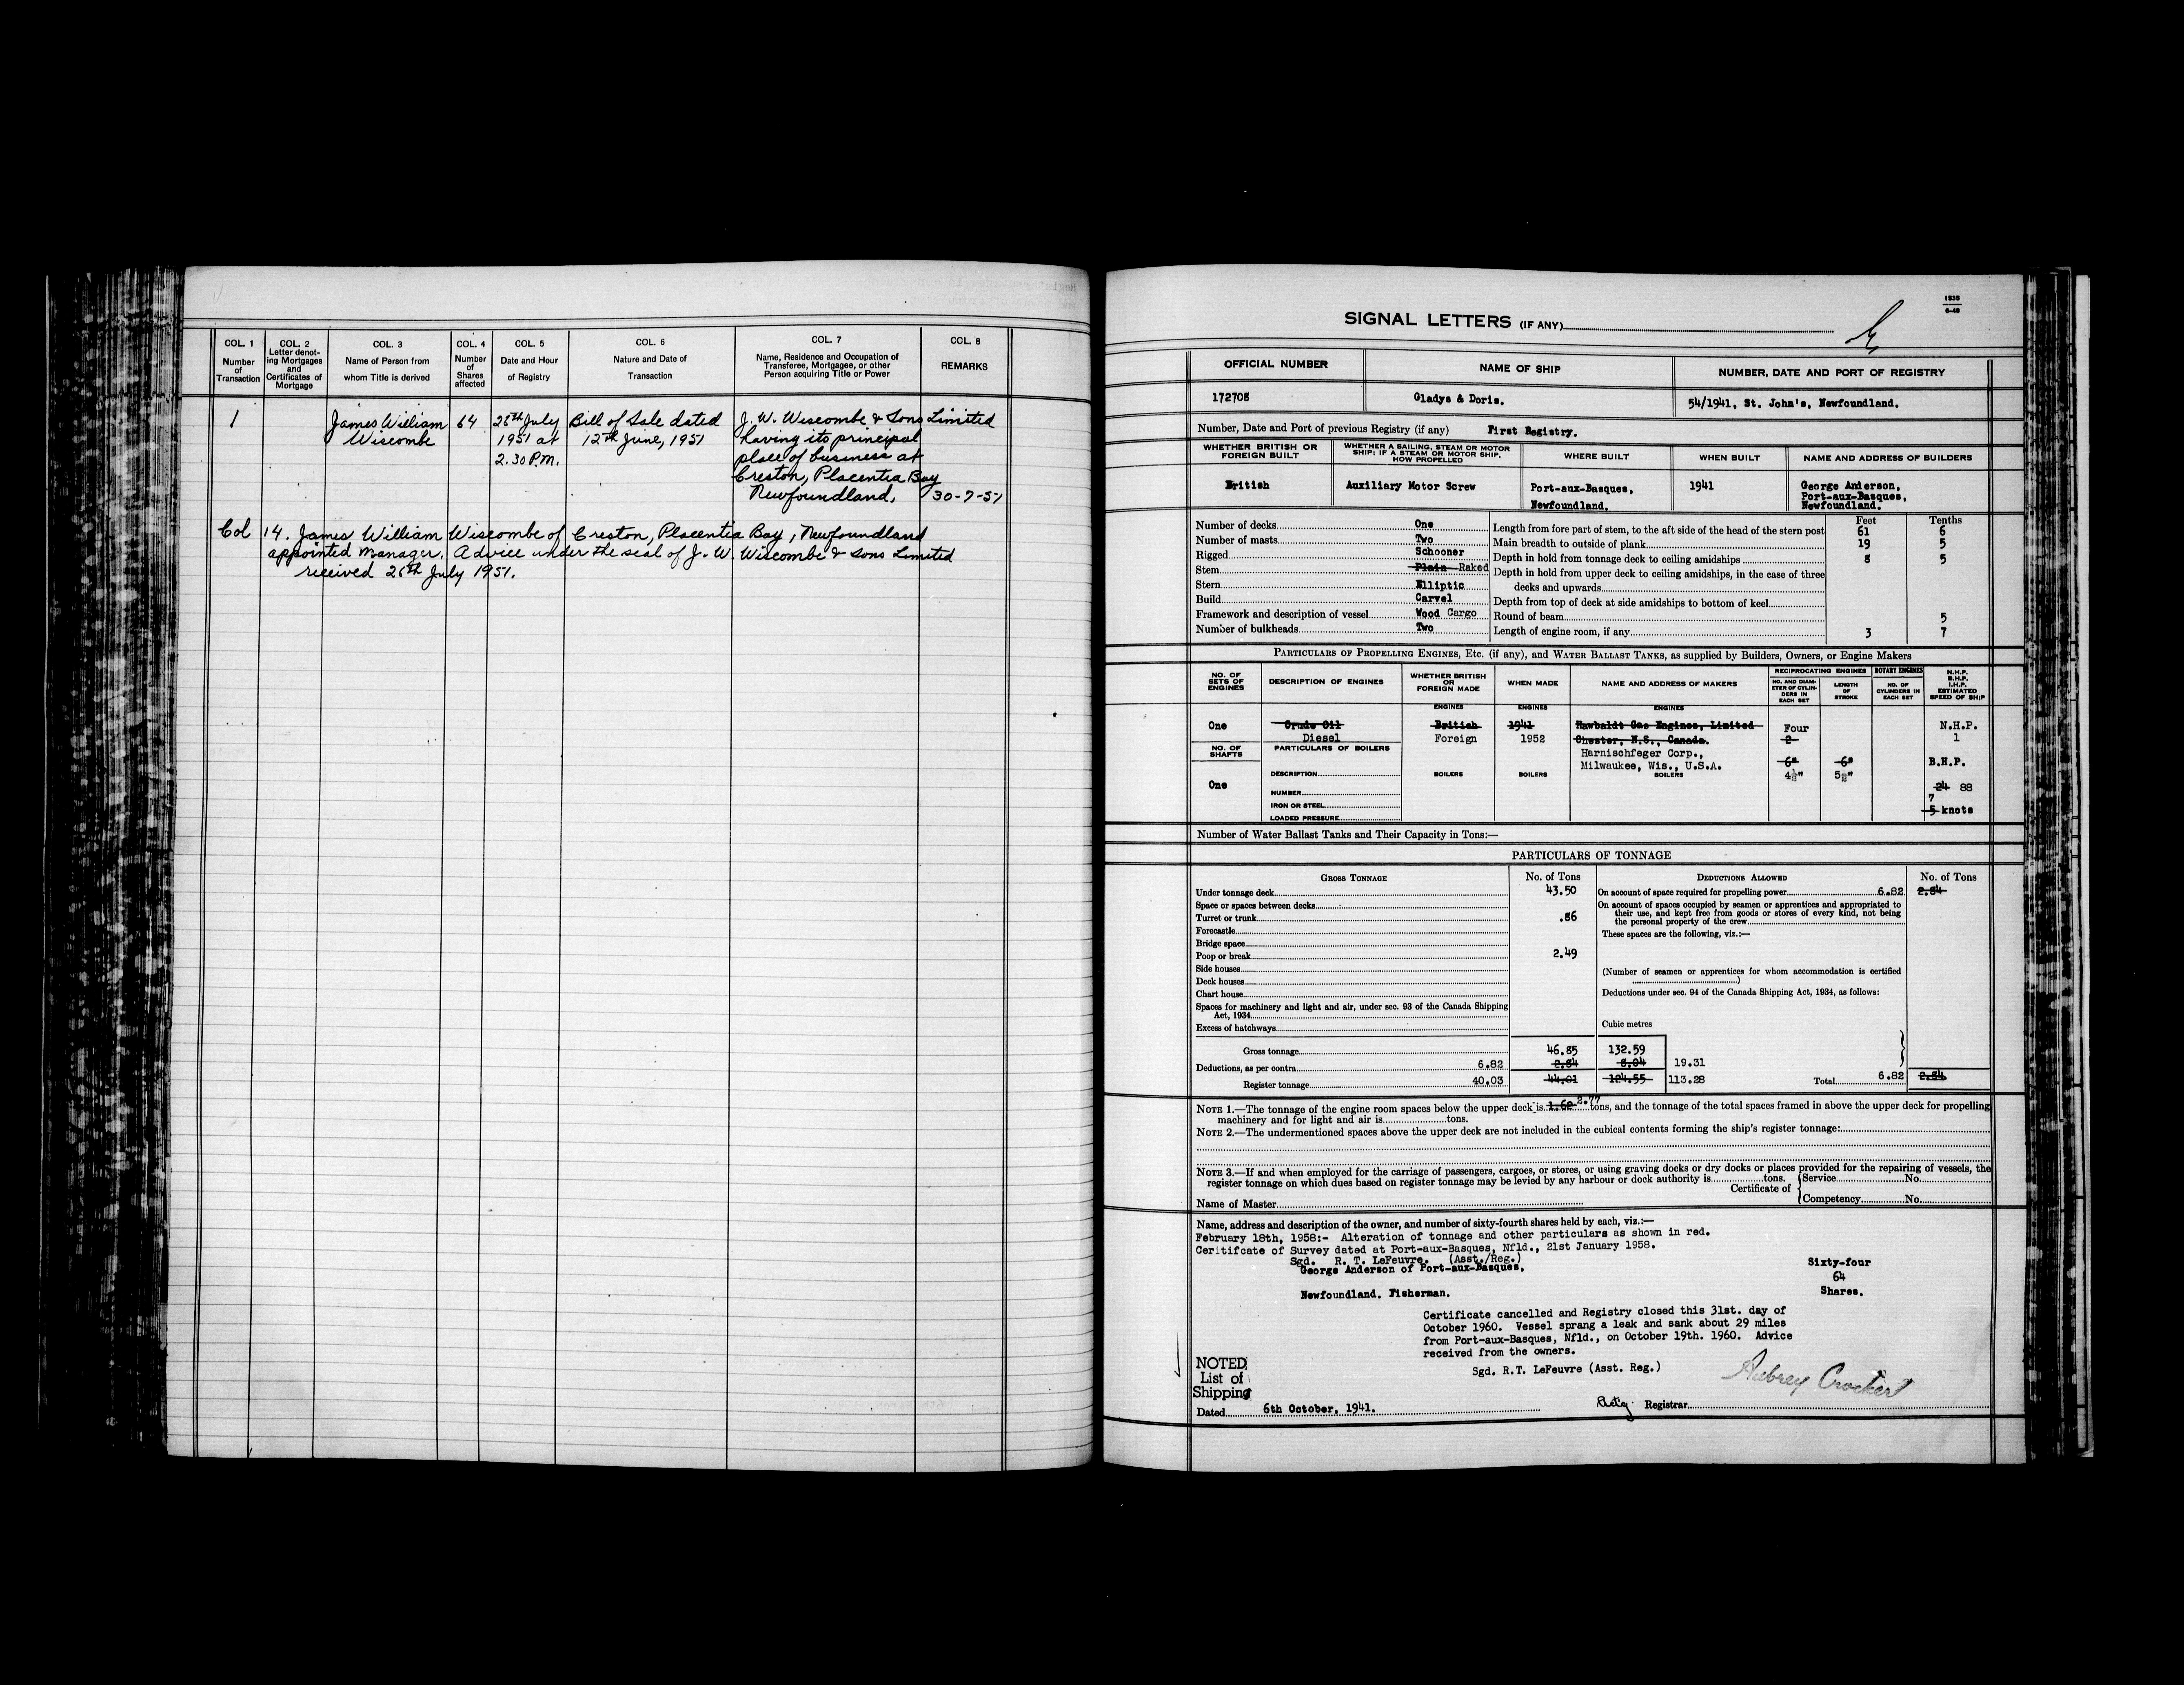 COL. 1
Number
of
Transaction
COL. 2
Letter denot-
ing Mortgages
and
Certificates of
Mortgage
COL. 3
Name of Person from
whom Title is derived
COL. 4
Number
of
Shares
affected
COL. 5
Date and Hour
of Registry
COL. 6
Nature and Date of
Transaction
COL. 7
Name, Residence and Occupation of
Transferee, Mortgagee, or other
Person acquiring Title or Power
COL. 8
REMARKS
1
James William
Wiscombe
64
26th July
1951 at
2.30 P.M.
Bill of Sale dated
12th June, 1951
J. W. Wiscombe & Sons Limited
having its principal
place of business at
Creston, Placentia Bay
Newfoundland.
30-7-51
Col 14. James William Wiscombe of Creston, Placentia Bay, Newfoundland
appointed manager. Advice under the seal of J. W. Wiscombe & Sons Limited
received 26th July 1951.
1938
6-48
SIGNAL LETTERS (IF ANY)
OFFICIAL NUMBER
NAME OF SHIP
NUMBER, DATE AND PORT OF REGISTRY
172708
Gladys & Doris.
54/1941, St. John's, Newfoundland.
Number, Date and Port of previous Registry (if any) First Registry.
WHETHER BRITISH OR
FOREIGN BUILT
WHETHER A SAILING, STEAM OR MOTOR
SHIP; IF A STEAM OR MOTOR SHIP,
HOW PROPELLED
WHERE BUILT
WHEN BUILT
NAME AND ADDRESS OF BUILDERS
British
Auxiliary Motor Screw
Port-aux-Basques,
Newfoundland.
1941
George Anderson,
Port-aux-Basques,
Newfoundland.
Feet Tenths
Number of decks One
Number of masts Two
Rigged Schooner
Stem Plain Raked
Stern Elliptic
Build Carvel
Framework and description of vessel Wood Cargo
Number of bulkheads Two
Length from fore part of stem, to the aft side of the head of the stern post 61 6
Main breadth to outside of plank 19 5
Depth in hold from tonnage deck to ceiling amidships 8 5
Depth in hold from upper deck to ceiling amidships, in the case of three
decks and upwards
Depth from top of deck at side amidships to bottom of keel
Round of beam 5
Length of engine room, if any 3 7
PARTICULARS OF PROPELLING ENGINES, ETC. (if any), and WATER BALLAST TANKS, as supplied by Builders, Owners, or Engine Makers
NO. OF
SETS OF
ENGINES
DESCRIPTION OF ENGINES
WHETHER BRITISH
OR
FOREIGN MADE
WHEN MADE
NAME AND ADDRESS OF MAKERS
RECIPROCATING ENGINES
NO. AND DIAM-
ETER OF CYLIN-
DERS IN
EACH SET
LENGTH
OF
STROKE
ROTARY ENGINES
NO. OF
CYLINDERS IN
EACH SET
N.H.P.
B.H.P.
I.H.P.
ESTIMATED
SPEED OF SHIP
ENGINES
ENGINES
ENGINES
One
Crude Oil
Diesel
British
Foreign
1941
1952
Hawboldt Gas Engines, Limited
Chester, N.S., Canada.
Harnischfeger Corp.,
Milwaukee, Wis., U.S.A.
Four
2
6"
4½"
6"
5½"
N.H.P.
1
B.H.P.
24 88
7
5 knots
NO. OF
SHAFTS
One
PARTICULARS OF BOILERS
DESCRIPTION
NUMBER
IRON OR STEEL
LOADED PRESSURE
BOILERS
BOILERS
BOILERS
Number of Water Ballast Tanks and Their Capacity in Tons:—
PARTICULARS OF TONNAGE
GROSS TONNAGE
No. of Tons
DEDUCTIONS ALLOWED
No. of Tons
Under tonnage deck 43.50
Space or spaces between decks
Turret or trunk .86
Forecastle
Bridge space
Poop or break 2.49
Side houses
Deck houses
Chart house
Spaces for machinery and light and air, under sec. 93 of the Canada Shipping
Act, 1934
Excess of hatchways
On account of space required for propelling power 6.82 2.84
On account of spaces occupied by seamen or apprentices and appropriated to
their use, and kept free from goods or stores of every kind, not being
the personal property of the crew
These spaces are the following, viz.:—
(Number of seamen or apprentices for whom accommodation is certified
)
Deductions under sec. 94 of the Canada Shipping Act, 1934, as follows:
Cubic metres
Gross tonnage 46.85 132.59
Deductions, as per contra 6.82 2.84 8.04 19.31
Register tonnage 40.03 44.01 124.55 113.28
Total 6.82 2.84
NOTE 1.—The tonnage of the engine room spaces below the upper deck is 1.62 2.77 tons, and the tonnage of the total spaces framed in above the upper deck for propelling
machinery and for light and air is tons.
NOTE 2.—The undermentioned spaces above the upper deck are not included in the cubical contents forming the ship's register tonnage:
NOTE 3.—If and when employed for the carriage of passengers, cargoes, or stores, or using graving docks or dry docks or places provided for the repairing of vessels, the
register tonnage on which dues based on register tonnage may be levied by any harbour or dock authority is tons.
Certificate of
Service No.
Competency No.
Name of Master
Name, address and description of the owner, and number of sixty-fourth shares held by each, viz.:—
February 18th, 1958:- Alteration of tonnage and other particulars as shown in red.
Ceritifcate of Survey dated at Port-aux-Basques, Nfld., 21st January 1958.
Sgd. R. T. LeFeuvre. (Asst./Reg.)
George Anderson of Port-aux-Basques,
Newfoundland. Fisherman.
Sixty-four
64
Shares.
Certificate cancelled and Registry closed this 31st. day of
October 1960. Vessel sprang a leak and sank about 29 miles
from Port-aux-Basques, Nfld., on October 19th. 1960. Advice
received from the owners.
Sgd. R.T. LeFeuvre (Asst. Reg.)
NOTED
List of
Shipping
Aubrey Crocker
Dated 6th October, 1941.
Registrar